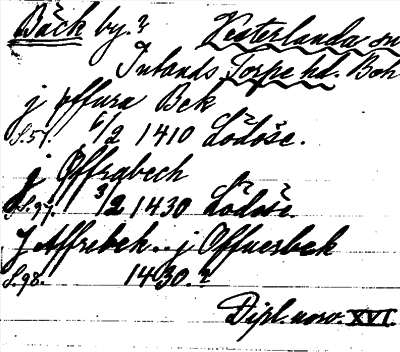 Bäck by.?
Vesterlanda sn
Inlands Torpe hd. Boh
j offura Bek
S.57. 6/2 1410 Lödöse.
j Offrabech
S.97. 3/2 1430 Lödöse.
J Affrebek.. j Offuerbek
S.98. 1430.?
Dipl. norv. XVI.